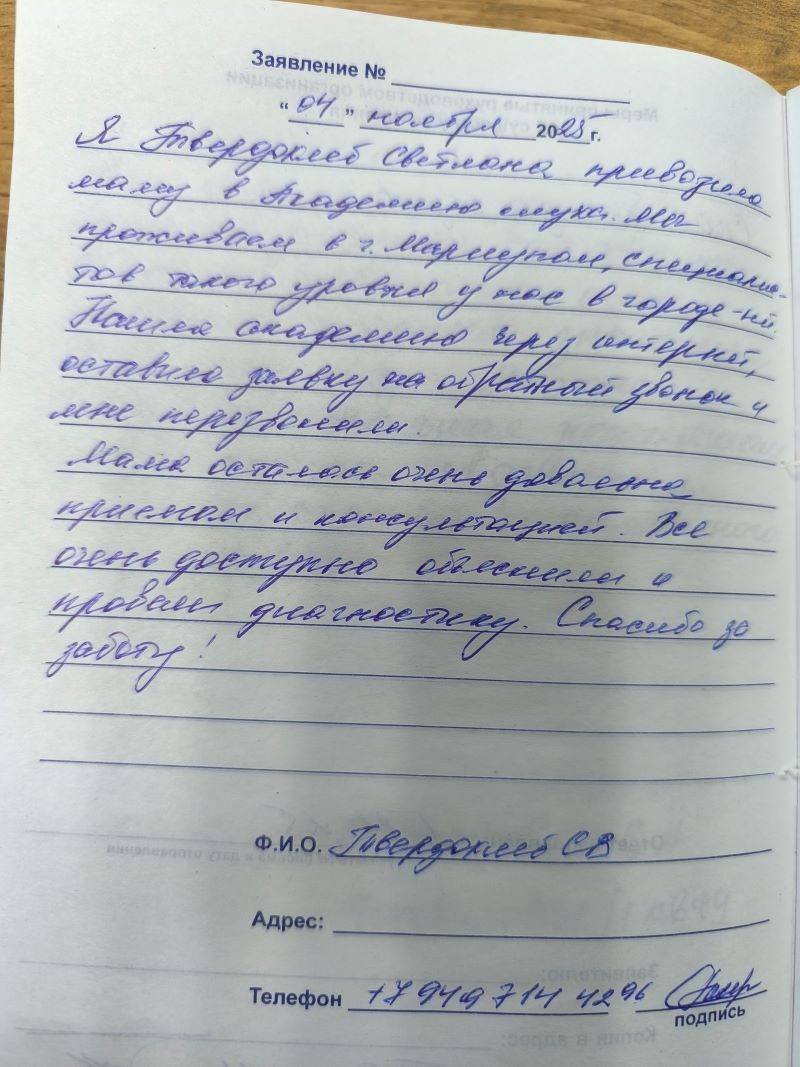 Заявление №
"04" ноября 2025 г.
Я Твердохлеб Светлана привозила
маму в Академию слуха. Мы
проживаем в г. Мариуполь, специалис-
тов такого уровня у нас в городе - нет.
Нашла академию через интернет,
оставила заявку на обратный звонок и
мне перезвонили.
Мама осталась очень довольна
приемом и консультацией. Все
очень доступно объяснили и
провели диагностику. Спасибо за
заботу!
Ф.И.О. Твердохлеб СВ
Адрес:
Телефон +7 949 714 42 96
подпись